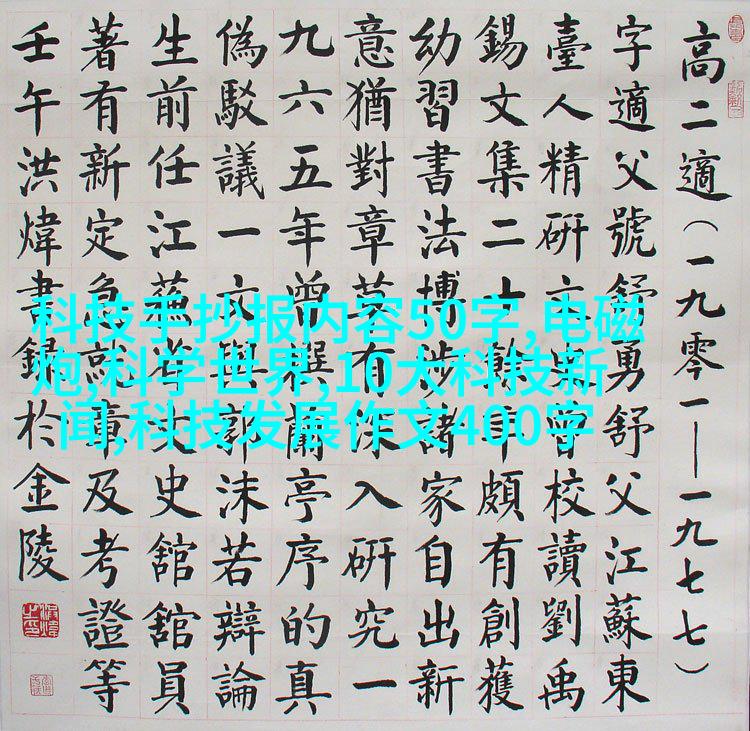 高二適（一九零一——一九七七）
字適父號舒勇舒父江蘇東
臺人精研文史曾校讀劉禹
錫文集二十餘年頗有創獲
幼習書法博涉諸家自出新
意猶對章草有深入研究一
九六五年曾撰蘭亭序的真
偽駁議一文與郭沫若辯論
生前任江蘇省文史舘舘員
著有新定急就章及考證等
壬午洪煒書錄於金陵
科技手抄报内容50字,电磁
炮,科学世界,10大科技新
闻,科技发展作文400字